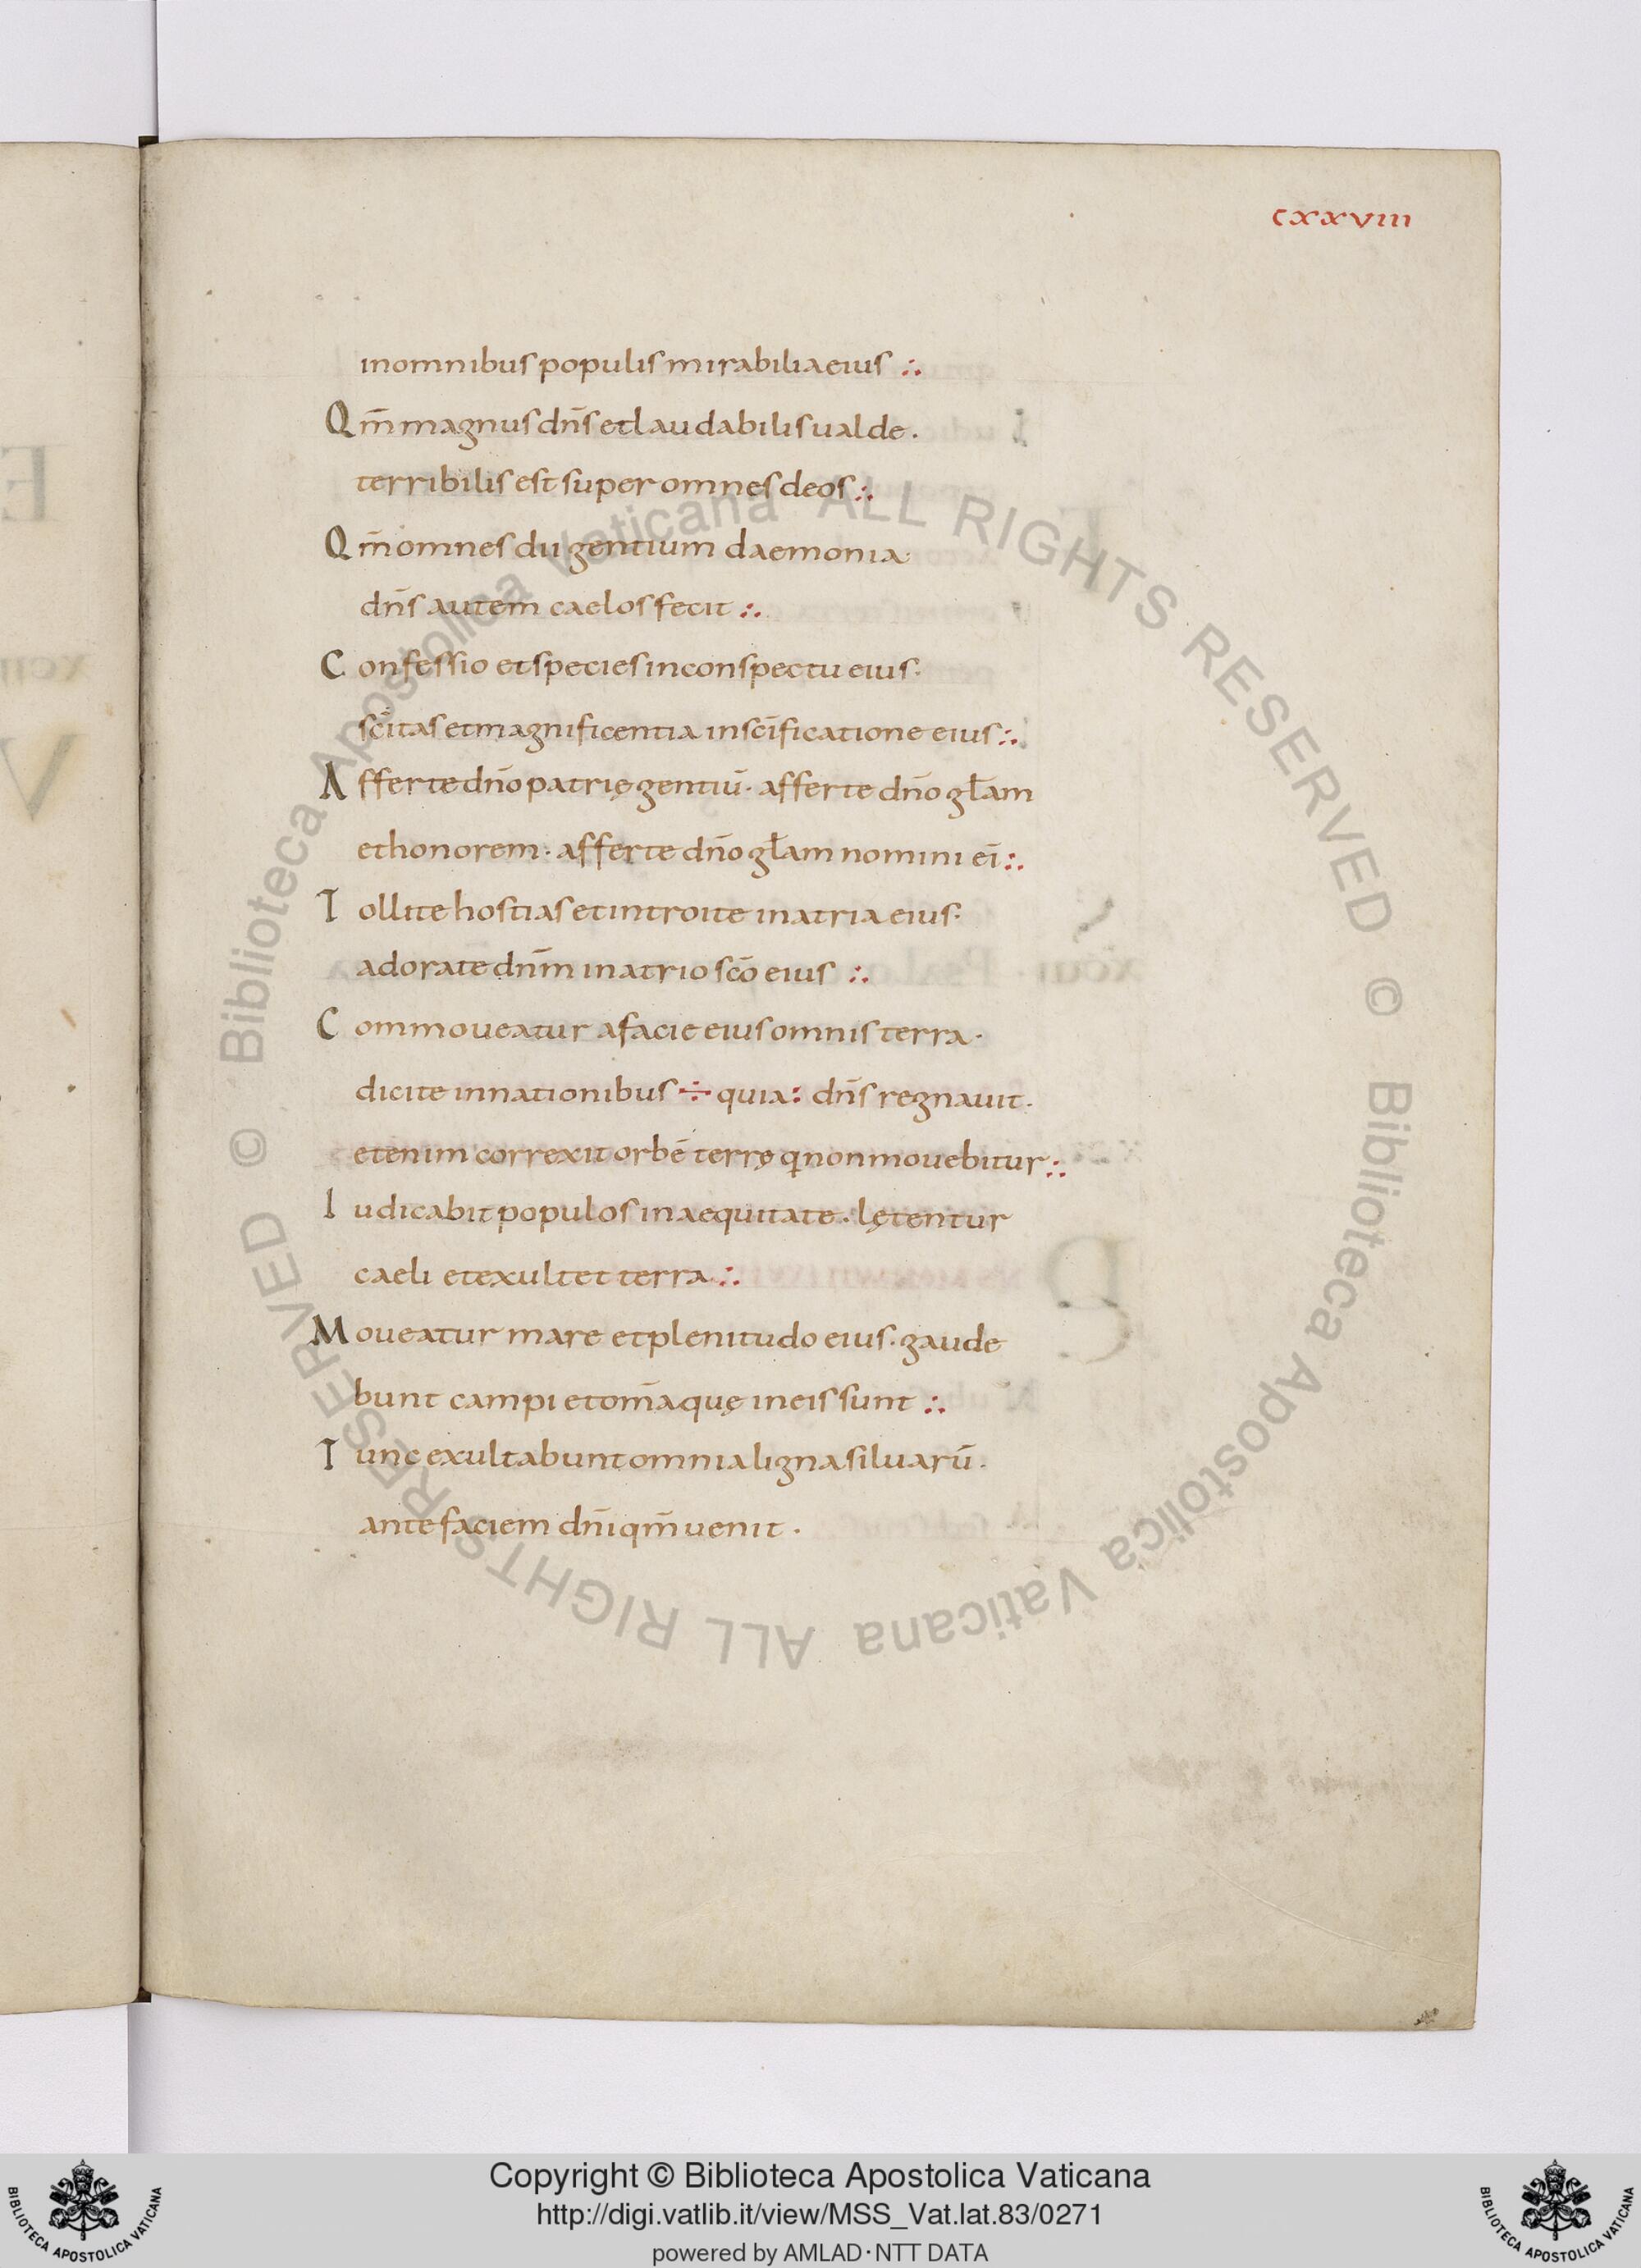 cxxviii
inomnibus populis mirabilia eius ∴
Qm̅ magnus dn̅s et laudabilis ualde.
terribilis est super omnes deos ∴
Qm̅ omnes dii gentium daemonia
dn̅s autem caelos fecit ∴
Confessio et species in conspectu eius.
sci̅tas et magnificentia in sci̅ficatione eius ∴
Afferte dn̅o patrię gentiu̅. afferte dn̅o gl̅am
et honorem. afferte dn̅o gl̅am nomini ei̅ ∴
Tollite hostias et introite in atria eius.
adorate dn̅m in atrio sco̅ eius ∴
Commoueatur a facie eius omnis terra.
dicite in nationibus ÷ quia : dn̅s regnauit.
etenim correxit orbe̅ terrę q non mouebitur ∴
Iudicabit populos in aequitate. lętentur
caeli et exultet terra ∴
Moueatur mare et plenitudo eius. gaude
bunt campi et om̅a quę in eis sunt ∴
Tunc exultabunt omnia ligna siluaru̅.
ante faciem dn̅i qm̅ uenit.
© Biblioteca Apostolica Vaticana ALL RIGHTS RESERVED
© Biblioteca Apostolica Vaticana ALL RIGHTS RESERVED
Copyright © Biblioteca Apostolica Vaticana
http://digi.vatlib.it/view/MSS_Vat.lat.83/0271
powered by AMLAD·NTT DATA
BIBLIOTECA APOSTOLICA VATICANA
BIBLIOTECA APOSTOLICA VATICANA